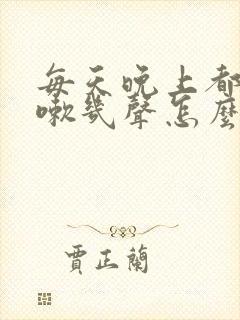 每天晚上都
嗽幾聲怎麼
賈正蘭